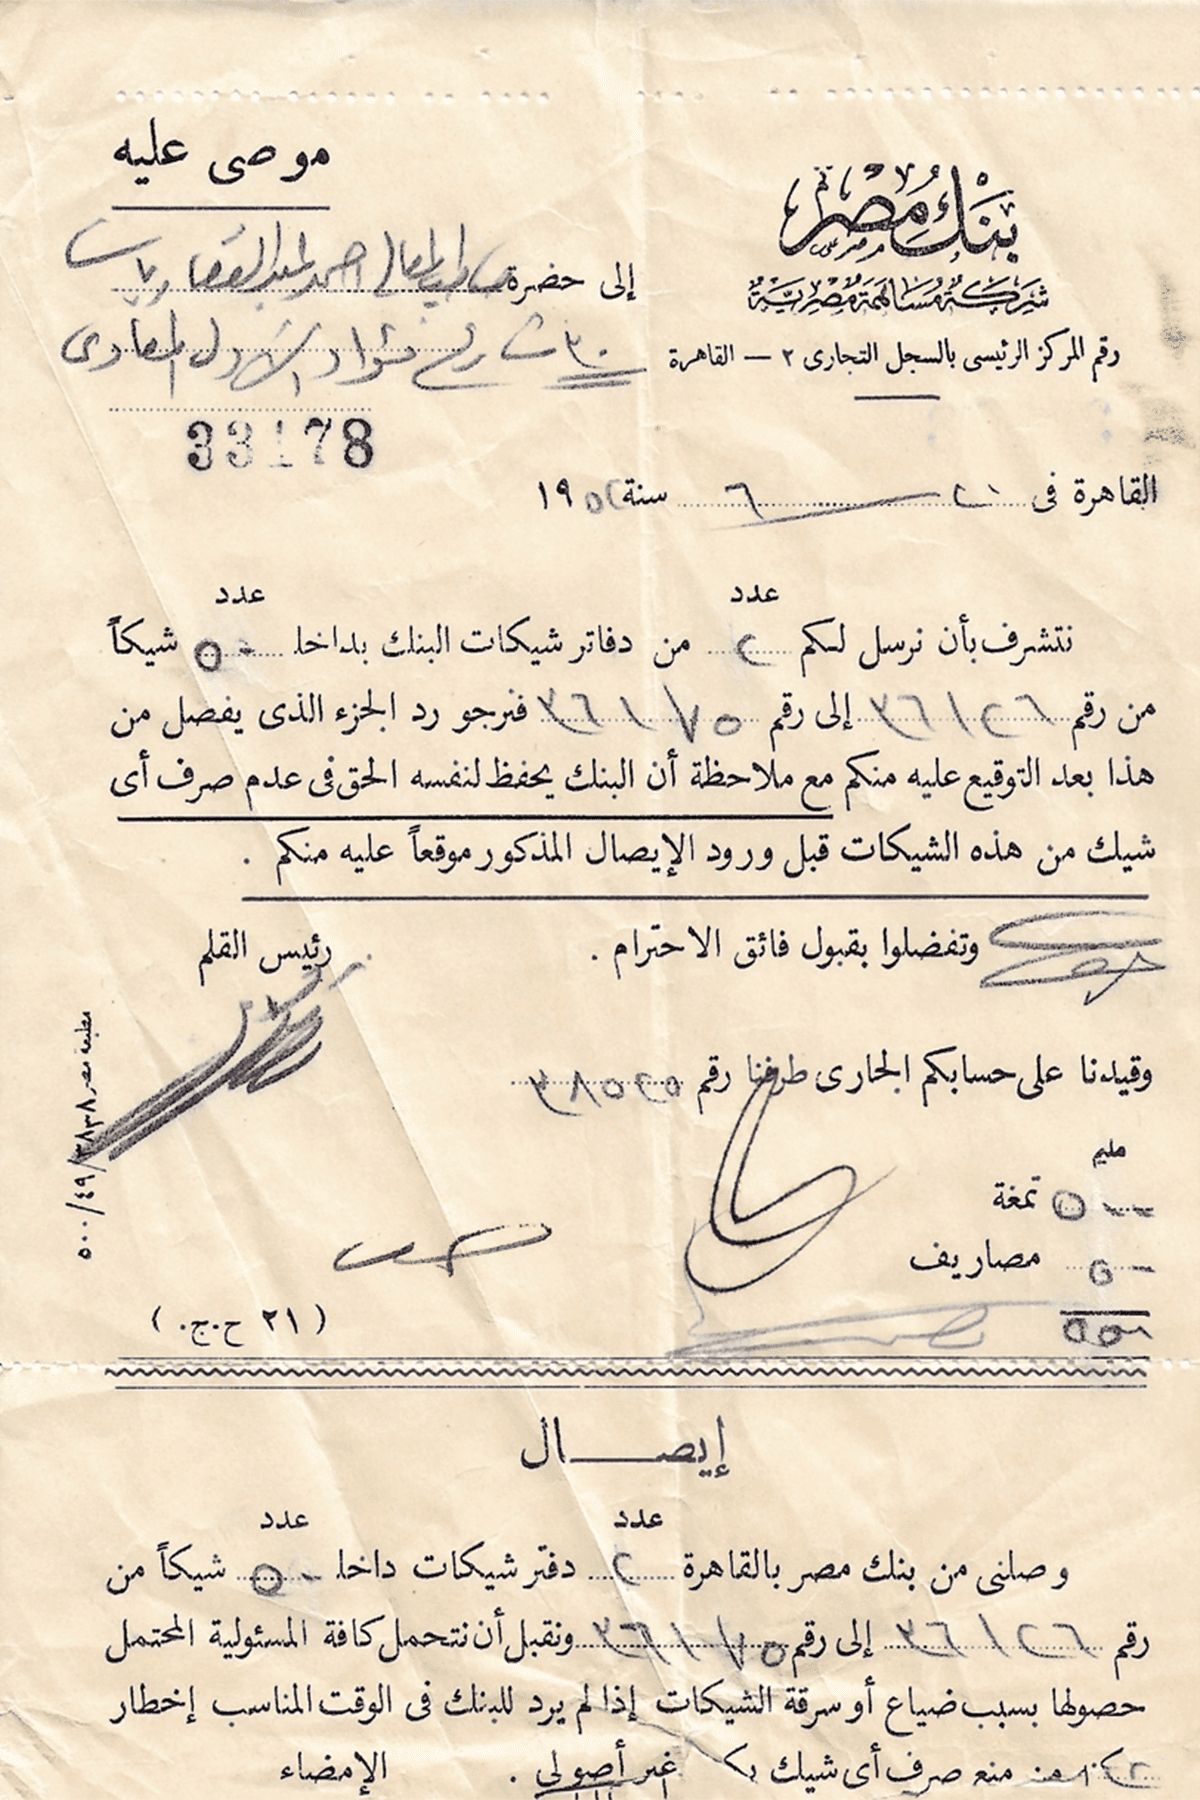 موصى عليه
بنك مصر
شركة مساهمة مصرية
رقم المركز الرئيسى بالسجل التجارى ٢ — القاهرة
إلى حضرة صاحب المعالى احمد
٣٠ شارع فؤاد الاول المعادى
33178
القاهرة فى ٢١ / ٦ سنة ١٩٥٢
عدد عدد
نتشرف بأن نرسل لكم ٢ من دفاتر شيكات البنك بداخلـ ٥٠ شيكاً
من رقم ٣٦١٢٦ إلى رقم ٣٦١٧٥ فنرجو رد الجزء الذى يفصل من
هذا بعد التوقيع عليه منكم مع ملاحظة أن البنك يحفظ لنفسه الحق فى عدم صرف أى
شيك من هذه الشيكات قبل ورود الإيصال المذكور موقعاً عليه منكم .
وتفضلوا بقبول فائق الاحترام .
رئيس القلم
وقيدنا على حسابكم الجارى طرفنا رقم
مليم
٥٠٠ تمغة
٥٠ مصاريف
٥٥٠
مطبعة مصر ٥٠٠/٤٩/٣٨٣٨
( ٢١ ح.ج. )
إيصـــال
عدد عدد
وصلنى من بنك مصر بالقاهرة ٢ دفتر شيكات داخلـ ٥٠ شيكاً من
رقم ٣٦١٢٦ إلى رقم ٣٦١٧٥ ونقبل أن نتحمل كافة المسئولية المحتمل
حصولها بسبب ضياع أو سرقة الشيكات إذا لم يرد للبنك فى الوقت المناسب إخطار
من منع صرف أى شيك غير أصولى .
الإمضاء